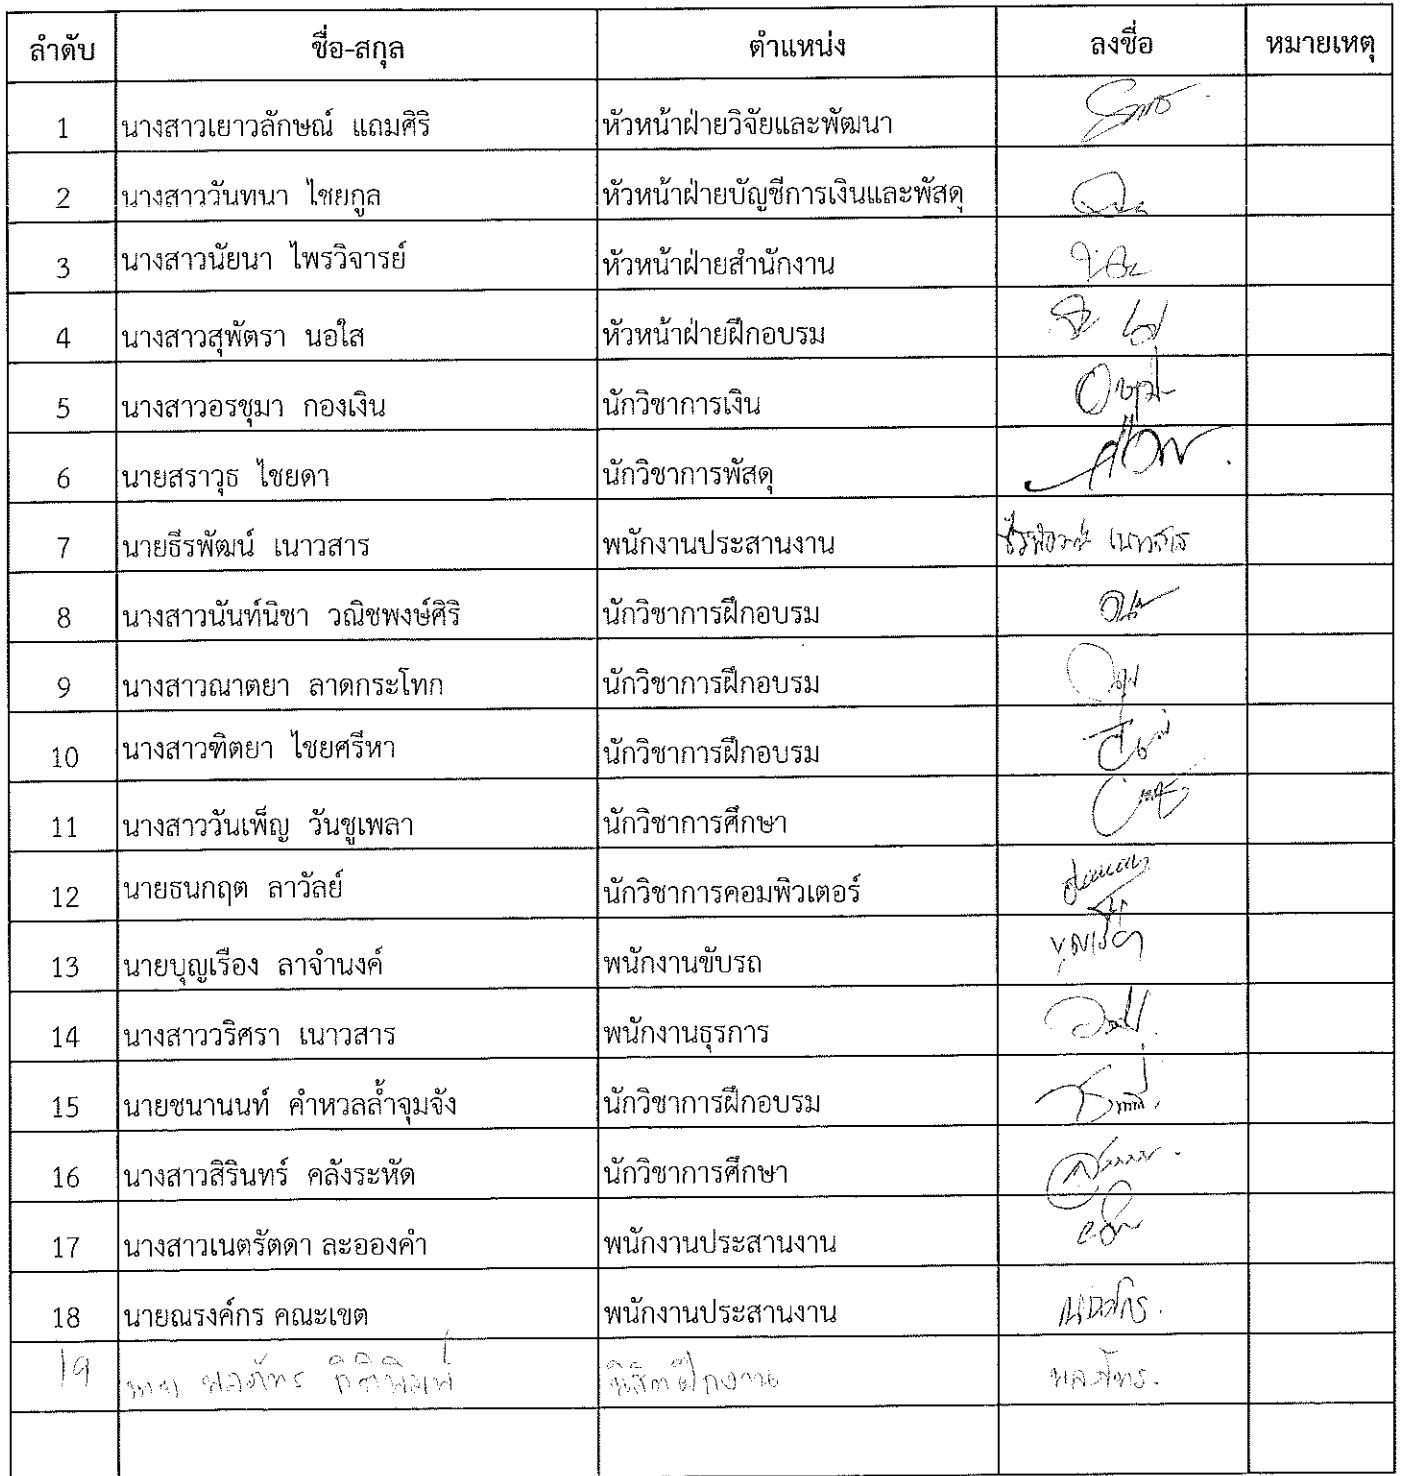 ลำดับ ชื่อ-สกุล ตำแหน่ง ลงชื่อ หมายเหตุ
1 นางสาวเยาวลักษณ์ แถมศิริ หัวหน้าฝ่ายวิจัยและพัฒนา
2 นางสาววันทนา ไชยกูล หัวหน้าฝ่ายบัญชีการเงินและพัสดุ
3 นางสาวนัยนา ไพรวิจารย์ หัวหน้าฝ่ายสำนักงาน
4 นางสาวสุพัตรา นอใส หัวหน้าฝ่ายฝึกอบรม
5 นางสาวอรชุมา กองเงิน นักวิชาการเงิน
6 นายสราวุธ ไชยดา นักวิชาการพัสดุ
7 นายธีรพัฒน์ เนาวสาร พนักงานประสานงาน ธีรพัฒน์ เนาวสาร
8 นางสาวนันท์นิชา วณิชพงษ์ศิริ นักวิชาการฝึกอบรม
9 นางสาวณาตยา ลาดกระโทก นักวิชาการฝึกอบรม
10 นางสาวฑิตยา ไชยศรีหา นักวิชาการฝึกอบรม
11 นางสาววันเพ็ญ วันชูเพลา นักวิชาการศึกษา
12 นายธนกฤต ลาวัลย์ นักวิชาการคอมพิวเตอร์
13 นายบุญเรือง ลาจำนงค์ พนักงานขับรถ
14 นางสาววริศรา เนาวสาร พนักงานธุรการ
15 นายชนานนท์ คำหวลล้ำจุมจัง นักวิชาการฝึกอบรม
16 นางสาวสิรินทร์ คลังระหัด นักวิชาการศึกษา
17 นางสาวเนตรัตดา ละอองคำ พนักงานประสานงาน
18 นายณรงค์กร คณะเขต พนักงานประสานงาน ณรงค์กร.
19 นาย พลภัทร กิติพิมพ์ นิสิตฝึกงาน พลภัทร.